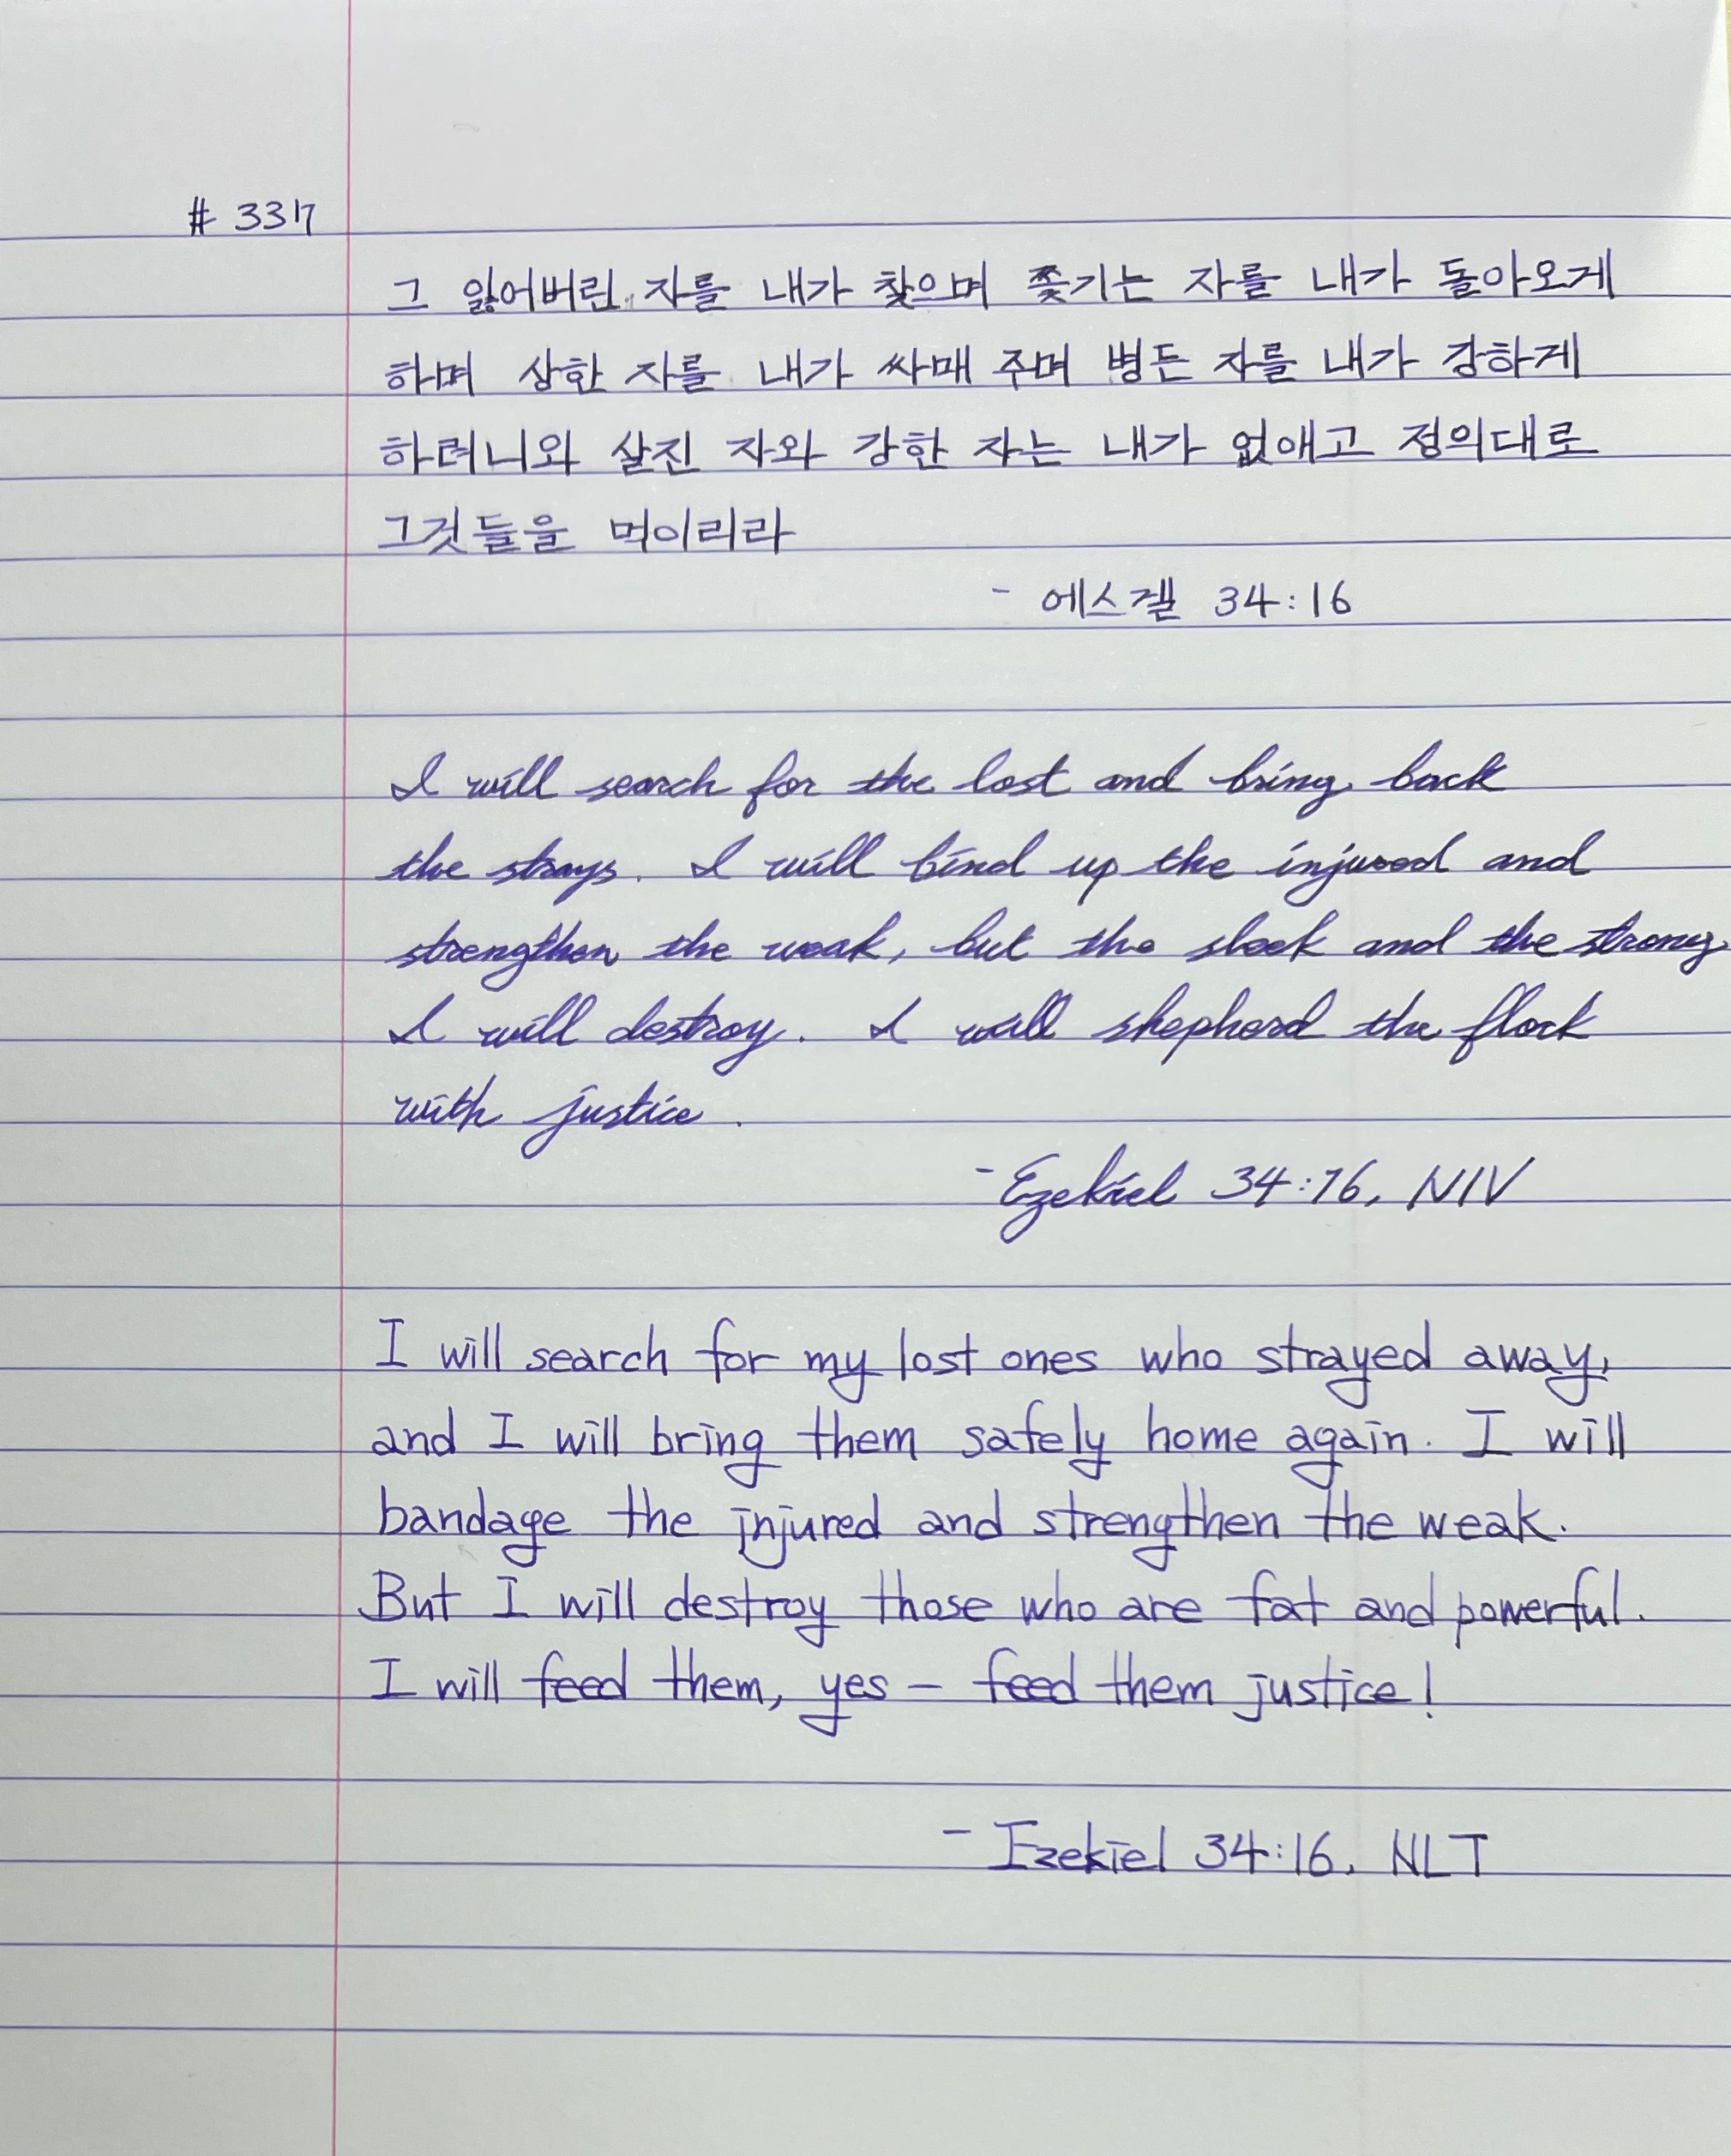 # 337
그 잃어버린 자를 내가 찾으며 쫓기는 자를 내가 돌아오게
하며 상한 자를 내가 싸매 주며 병든 자를 내가 강하게
하려니와 살진 자와 강한 자는 내가 없애고 정의대로
그것들을 먹이리라
- 에스겔 34:16
I will search for the lost and bring back
the strays. I will bind up the injured and
strengthen the weak, but the sleek and the strong
I will destroy. I will shepherd the flock
with justice.
- Ezekiel 34:16, NIV
I will search for my lost ones who strayed away,
and I will bring them safely home again. I will
bandage the injured and strengthen the weak.
But I will destroy those who are fat and powerful.
I will feed them, yes - feed them justice!
- Ezekiel 34:16, NLT